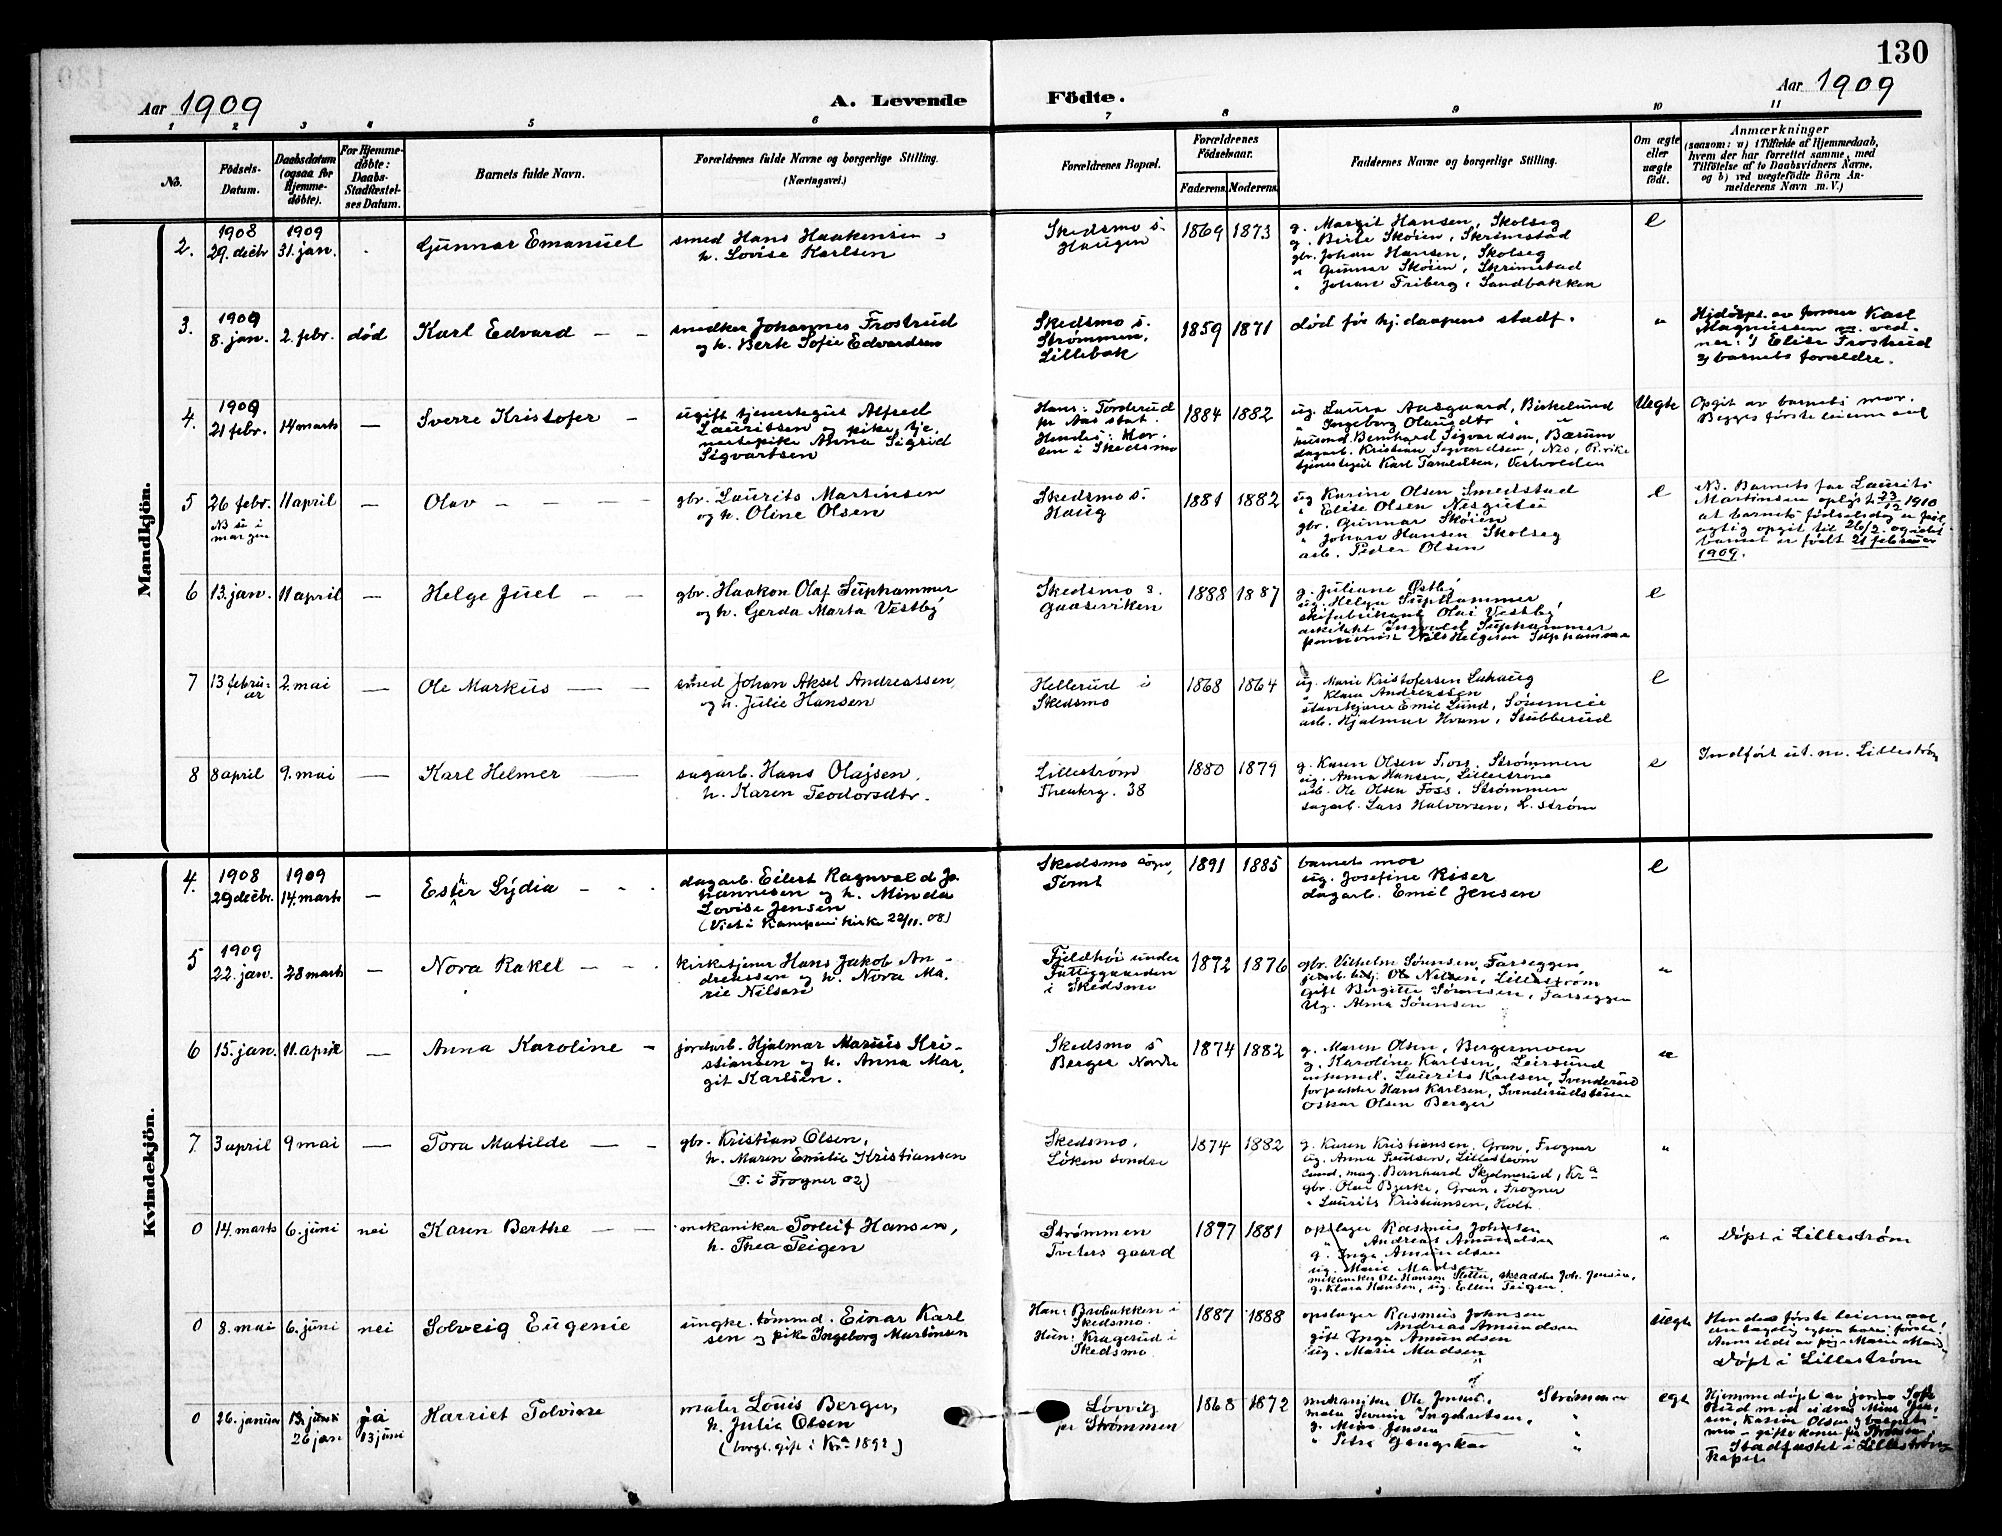 130
Aar 1909
A. Levende Födte.
Aar 1909
1 2 3 4 5 6 7 8 9 10 11
No.
Födsels-Datum.
Daabsdatum (ogsaa for Hjemmedöbte).
For Hjemmedöbte: Daabs-Stadfæstelses Datum.
Barnets fulde Navn.
Forældrenes fulde Navne og borgerlige Stilling.
(Næringsvei.)
Forældrenes Bopæl.
Forældrenes Födselsaar.
Faderens. Moderens.
Faddernes Navne og borgerlige Stilling.
Om ægte eller uægte födt.
Anmærkninger
(saasom: a) i Tilfælde af Hjemmedaab,
hvem der har forrettet samme, med
Tilföielse af to Daabsvidners Navne,
og b) ved uægtefödte Börn Anmelderens Navn m. V.)
Mandkjön.
2. 1908 29. decbr 1909 31. jan. - Gunnar Emanuel
smed Hans Haakensen
h. Lovise Karlsen
Skedsmo s.
Haugen
1869 1873
g. Margit Hansen, Skolseg
g. Birte Skøien, Skrimstad
gbr. Johan Hansen, Skolseg
" Gunnar Skøien, Skrimstad
" Johan Friberg, Sandbakken
e
3. 1909 8. jan. 2. febr. død Karl Edvard - -
snedker Johannes Frostrud
og h. Berte Sofie Edvardsen
Skedsmo s.
Strømmen,
Lillebak
1859 1871
død før hj. daapens stadf.
"
Hjdøpt av Karl
Magnussen
Elise Frostrud
barnets forældre.
4. 1909 21 febr. 14 marts - Sverre Kristofer -
ugift tjenestegut Alfred
Lauritsen og pike, tje-
nestepike Anna Sigrid
Sigvartsen
Hans: Torderud
pr Aas stat.
Hendes:
i Skedsmo
1884 1882
ug. Laura Aasgaard, Birkelund
" Ingeborg Olausdtr "
husmd. Bernhard Sigvardsen, Bærum
dagarb. Kristian Sigvardsen, Næs, Rrike
tjenestegut Karl Vestvolden
Uegte
Opgit av barnets mor.
Begges første leiermaal
5 26 febr. 11 april - Olav - - -
NB se i
margen
gbr. Laurits Martinsen
og h. Oline Olsen
Skedsmo s.
Haug
1881 1882
ug Karine Olsen Smedstad
" Elise Olsen
gbr. Gunnar Skøien
" Johan Hansen Skolseg
arb. Peder Olsen
e
NB. Barnets far Laurits
Martinsen oplyst 23/12 1910
at barnets fødselsdag er feil
agtig opgit til 26/2. og idet
barnet er født 21 februar
1909.
6 13. jan. 11 april - Helge Juel - -
gbr. Haakon Olaf Suphammer
og h. Gerda Marta Vestby
Skedsmo s.
Gaaseviken
1888 1887
g. Juliane Østby
ug. Helga Suphammer
skifabrikant Olai Vestby,
arkitekt Ingvald Suphammer
pensionist Nils Helgesen Suphammer
e
7 13 februar 2. mai - Ole Markus -
smed Johan Aksel Andreassen,
og h. Julie Hansen
Hellerud i
Skedsmo
1868 1864
ug. Marie Kristofersen
" Klara Andreassen
Emil Lund,
arb. Hjalmar Hvam, Stubberud
e
8 8 april 9. mai - Karl Helmer -
sagarb. Hans Olafsen,
h. Karen Teodorsdtr.
Lillestrøm
Theaterg. 38
1880 1879
g. Karen Olsen Foss, Strømmen
ug. Anna Hansen, Lillestrøm
arb. Ole Olsen Foss, Strømmen
sagarb. Lars Halvorsen, L. strøm
e
Indført ut. m. Lillestrøm
Kvindekjön.
4. 1908 29 decbr. 1909 14. marts - Esther Lydia - -
dagarb. Eilert Ragnvald Jo-
hannesen og h. Minda
Lovise Jensen
(Viet i Kampen kirke 22/11. 08)
Skedsmo sogn,
Tomt
1891 1885
barnets mor
ug. Josefine Riser
dagarb. Emil Jensen
e
5 1909 22. jan. 28 marts - Nora Rakel - -
kirketjener Hans Jakob An-
dreassen og h. Nora Ma-
rie Nilsen
Fjeldhøi under
Fattiggaarden
i Skedsmo
1872 1876
gbr. Vilhelm Sørensen, Farseggen
Ole Nilsen, Lillestrøm
Gift Birgitte Sørensen, Farseggen
Ug. Alma Sørensen
"
6 15. jan. 11. april - Anna Karoline -
jordarb. Hjalmar Marius Kri-
stiansen og h. Anna Mar-
git Karlsen.
Skedsmo s
Berger Nordre
1874 1882
g. Maren Olsen, Bergermoen
g. Karoline Karlsen, Leirsund
Laurits Karlsen, Svenderud
forpakter Hans Karlsen, Svenderudstuen
Oskar Olsen Berger
"
7 3 april 9 mai - Tora Matilde - -
gbr. Kristian Olsen,
h. Maren Emilie Kristiansen
(v. i Frogner 02)
Skedsmo,
Løken søndre
1874 1882
g. Karen Kristiansen, Gran, Frogner
ug. Anna Paulsen, Lillestrøm
cand. mag. Bernhard Skjelmerud, Kra
gbr. Olai Bjerke, Gran, Frogner
" Laurits Kristiansen, Holt
"
0 14. marts 6. juni nei Karen Berthe - -
mekaniker Torleif Hansen,
h. Thea Teigen
Strømmen
Tveters gaard
1877 1881
opslager Rasmus Johnsen
" Andreas Amundsen
g. Inga Amundsen
ug. Marie Madsen
mekaniker Ole Hansen Sletten, skrædder Joh. Jensen,
g. Klara Hansen, ug. Ellen Teigen.
"
Døpt i Lillestrøm
0 8. mai 6. juni nei Solveig Eugenie
ungk. tømmd. Einar Karl
sen og pike Ingeborg Martinsen
Han: Brobakken i
Skedsmo.
Hun: Kragerud i
Skedsmo
1887 1888
opslager Rasmus Johnsen
" Andreas Amundsen
gift Inga Amundsen
ug. Marie Madsen
uegte
Hendes første leiermaal,
Anmeldt av Marie
Døpt i Lillestrøm
0 26. januar 13. juni 26 jan ja 13 juni Harriet Solvisse
maler Louis Berger,
h. Julie Olsen
(borgl. gift i Kra 1892)
Løvvig
pr Strømmen
1868 1872
mekaniker Ole Jensen, Strømmen
maler Ingebretsen, "
g. Mina Jensen "
" Petra "
egte
Hjemmedøpt av
med vidner Mina Jen-
sen, Karine Olsen
Stadfæstet i Lillestrøm
kapel